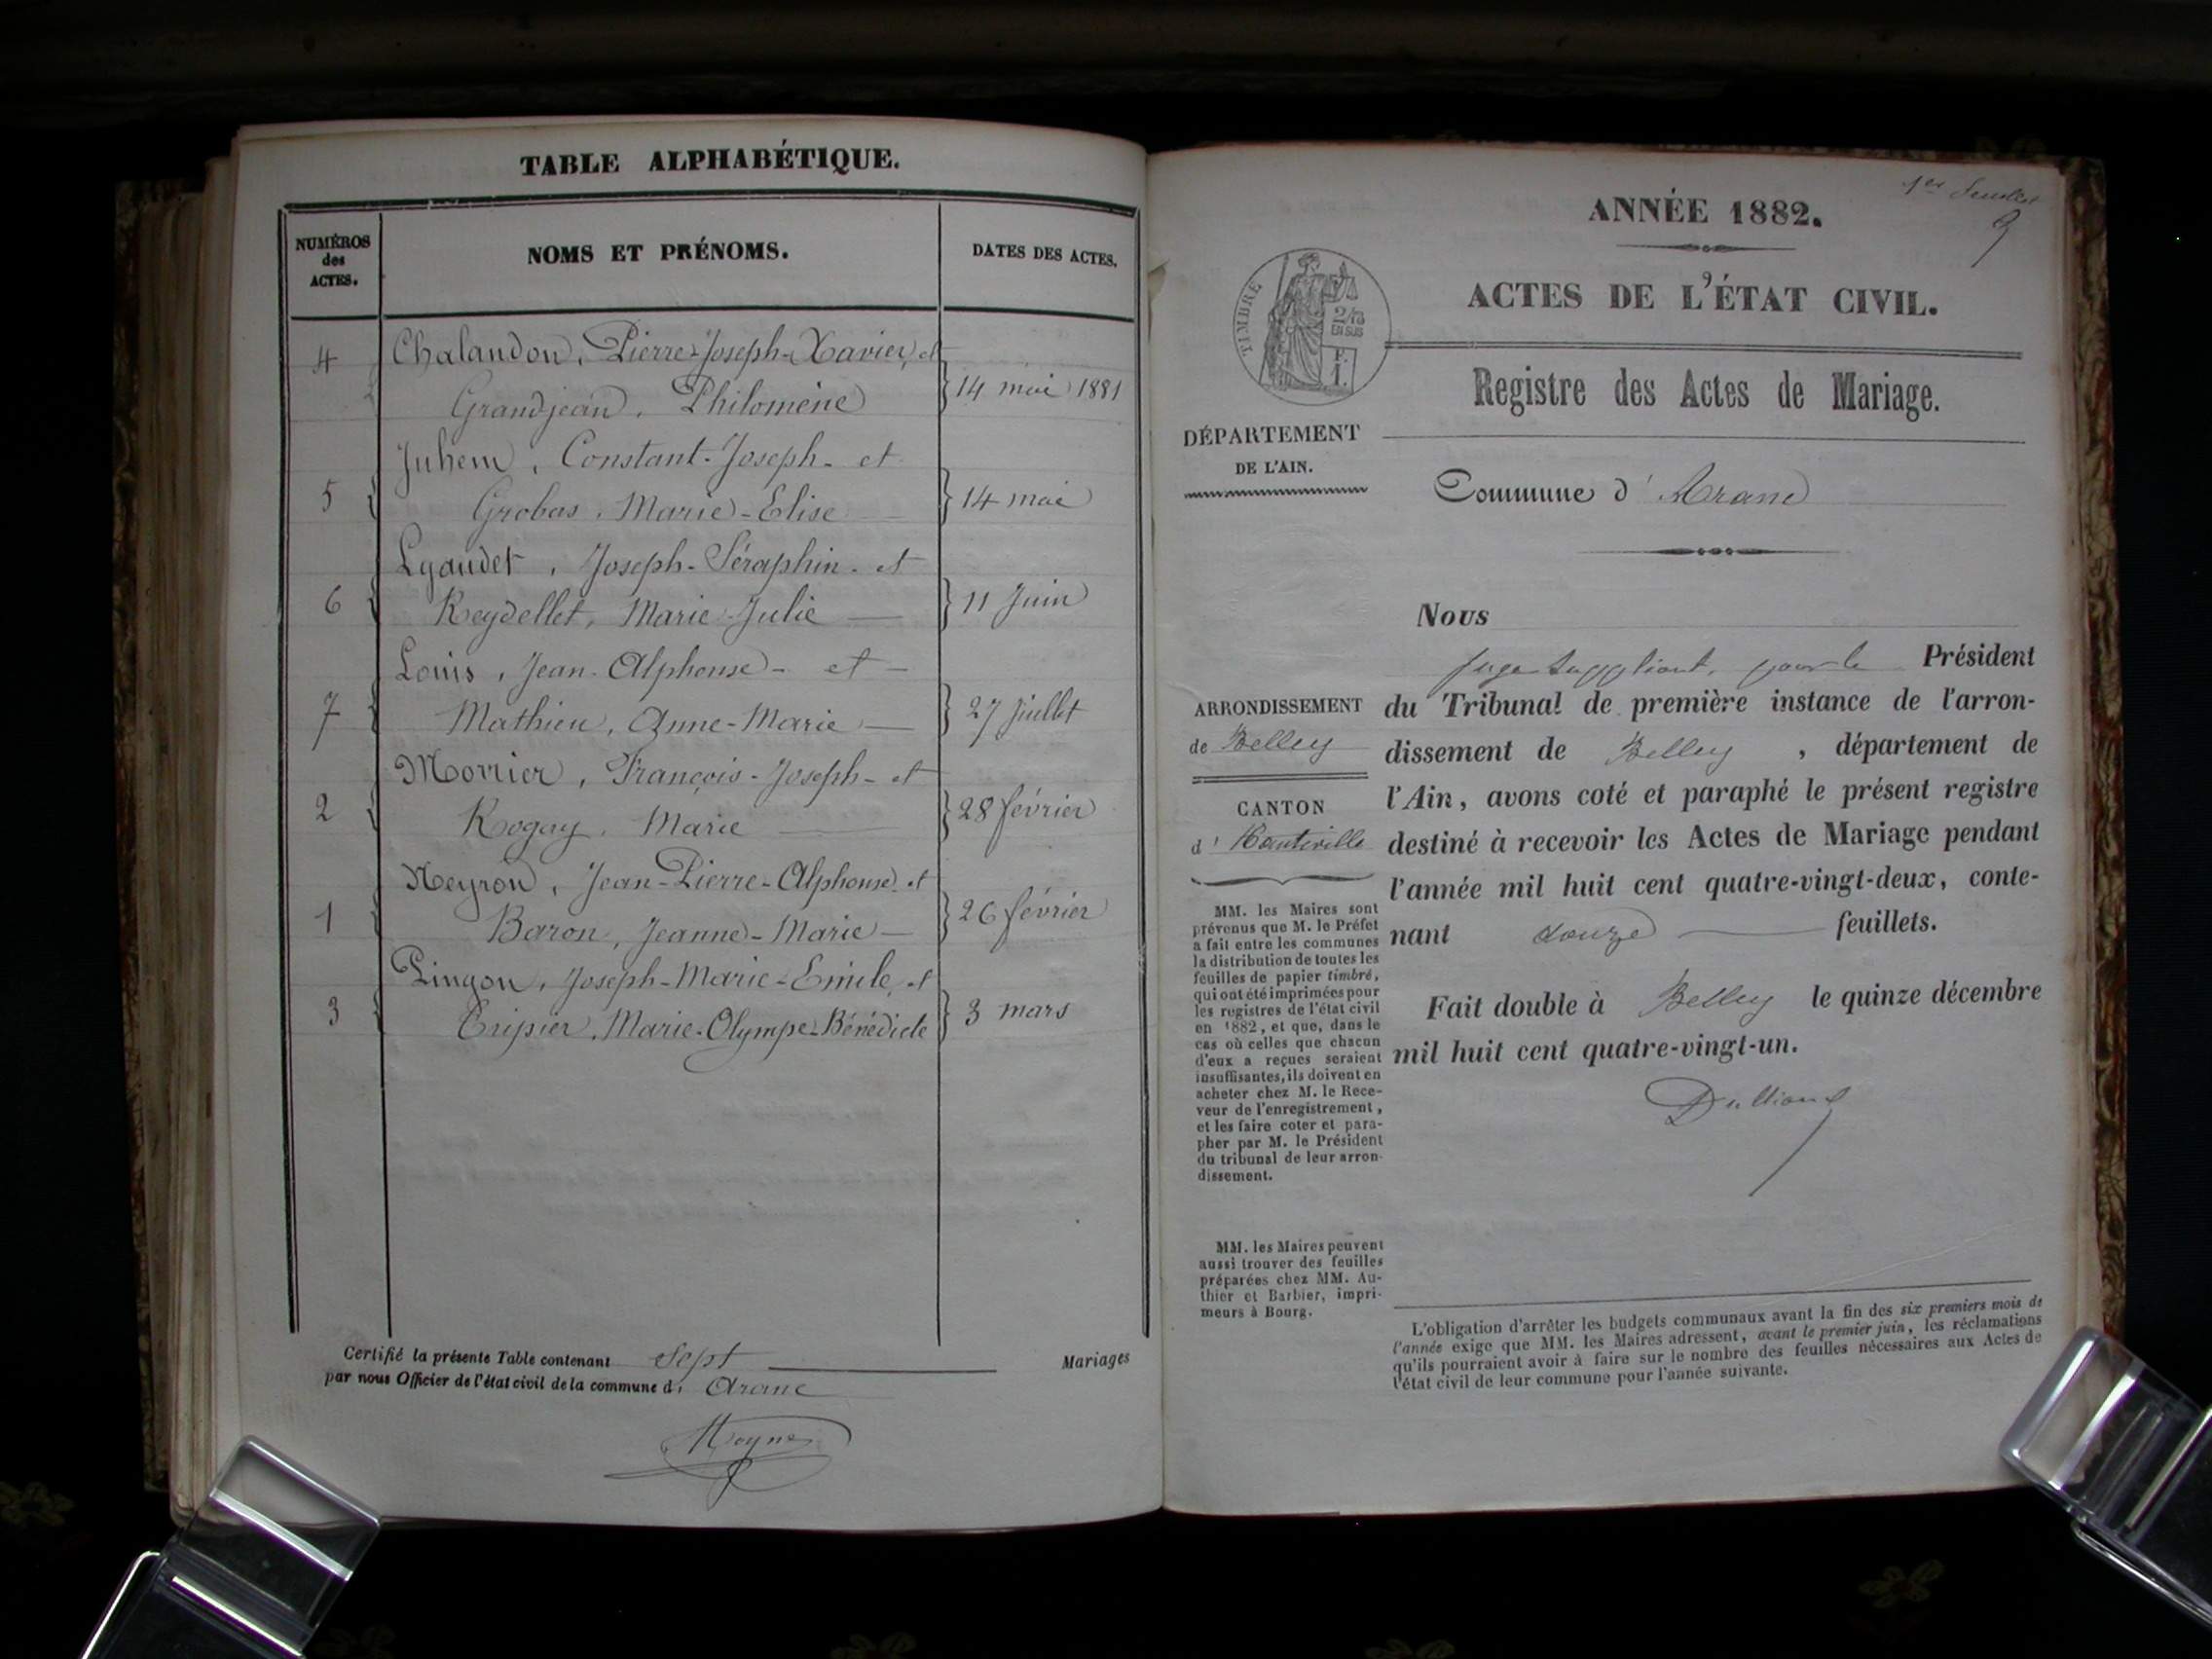 TABLE ALPHABÉTIQUE.
NUMÉROS
des
ACTES.
NOMS ET PRÉNOMS.
DATES DES ACTES.
4 Chalandon, Pierre-Joseph-Xavier, et
Grandjean, Philomène } 14 mai 1881
Juhem, Constant-Joseph- et
5 { Grobas, Marie-Elise } 14 mai
Lyaudet, Joseph-Séraphin- et
6 { Reydellet, Marie-Julie } 11 Juin
Louis, Jean-Alphonse- et
7 { Mathieu, Anne-Marie } 27 Juillet
Morrier, François-Joseph- et
2 { Rogay, Marie } 28 février
Neyron, Jean-Pierre-Alphonse et
1 { Baron, Jeanne-Marie } 26 février
Pingon, Joseph-Marie-Emile, et
3 { Tripier, Marie-Olympe-Bénédicte } 3 mars
Certifié la présente Table contenant Sept Mariages
par nous Officier de l'état civil de la commune d' Aranc
1er feuillet
ANNÉE 1882.
ACTES DE L'ÉTAT CIVIL.
TIMBRE
2/10
EN SUS
Registre des Actes de Mariage.
DÉPARTEMENT
DE L'AIN.
Commune d' Aranc
Nous
Juge suppléant, pour le Président
du Tribunal de première instance de l'arron-
dissement de Belley, département de
l'Ain, avons coté et paraphé le présent registre
destiné à recevoir les Actes de Mariage pendant
l'année mil huit cent quatre-vingt-deux, conte-
nant douze feuillets.
Fait double à Belley le quinze décembre
mil huit cent quatre-vingt-un.
ARRONDISSEMENT
de Belley
CANTON
d' Hauteville
MM. les Maires sont
prévenus que M. le Préfet
a fait entre les communes
la distribution de toutes les
feuilles de papier timbré,
qui ont été imprimées pour
les registres de l'état civil
en 1882, et que, dans le
cas où celles que chacun
d'eux a reçues seraient
insuffisantes, ils doivent en
acheter chez M. le Rece-
veur de l'enregistrement,
et les faire coter et para-
pher par M. le Président
du tribunal de leur arron-
dissement.
MM. les Maires peuvent
aussi trouver des feuilles
préparées chez MM. Au-
thier et Barbier, impri-
meurs à Bourg.
L'obligation d'arrêter les budgets communaux avant la fin des six premiers mois de
l'année exige que MM. les Maires adressent, avant le premier juin, les réclamations
qu'ils pourraient avoir à faire sur le nombre des feuilles nécessaires aux Actes de
l'état civil de leur commune pour l'année suivante.